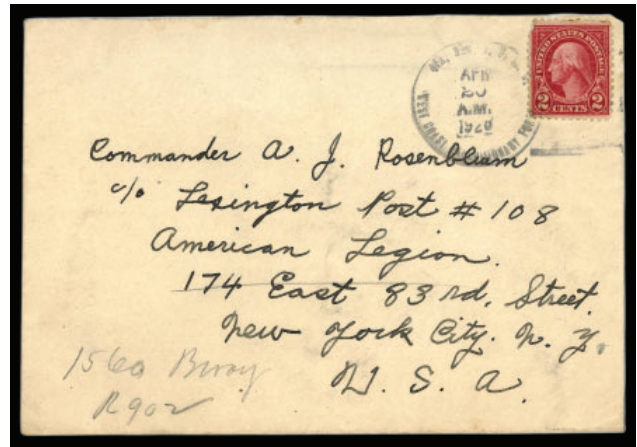 UNITED STATES POSTAGE
2 CENTS 2
APR
20
A.M.
Commander A. J. Rosenblum
c/o Lexington Post # 108
American Legion.
174 East 83rd. Street.
New York City. N. Y.
U. S. A.
1560 Bway
R902